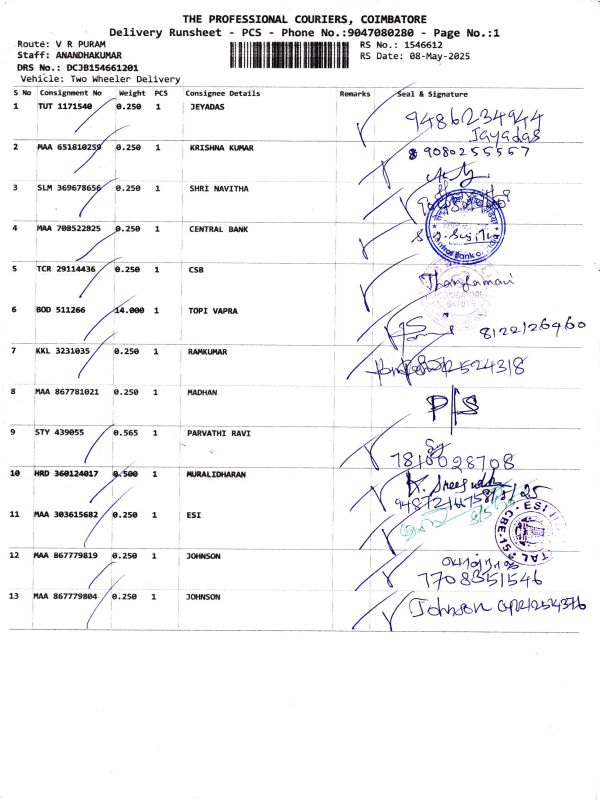 THE PROFESSIONAL COURIERS, COIMBATORE
Delivery Runsheet - PCS - Phone No.:9047080280 - Page No.:1
Route: V R PURAM
RS No.: 1546612
Staff: ANANDHAKUMAR
RS Date: 08-May-2025
DRS No.: DCJB154661201
Vehicle: Two Wheeler Delivery
S No Consignment No Weight PCS Consignee Details Remarks Seal & Signature
1 TUT 1171540 0.250 1 JEYADAS 9486234944
Jayadas
2 MAA 651810259 0.250 1 KRISHNA KUMAR 9080255557
3 SLM 369678656 0.250 1 SHRI NAVITHA
4 MAA 708522825 0.250 1 CENTRAL BANK
5 TCR 29114436 0.250 1 CSB
6 BOD 511266 14.000 1 TOPI VAPRA
7 KKL 3231035 0.250 1 RAMKUMAR
8 MAA 867781021 0.250 1 MADHAN P/S
9 STY 439055 0.565 1 PARVATHI RAVI
7810028708
10 HRD 360124017 0.500 1 MURALIDHARAN
11 MAA 303615682 0.250 1 ESI
12 MAA 867779819 0.250 1 JOHNSON
7708351546
13 MAA 867779804 0.250 1 JOHNSON Johnson